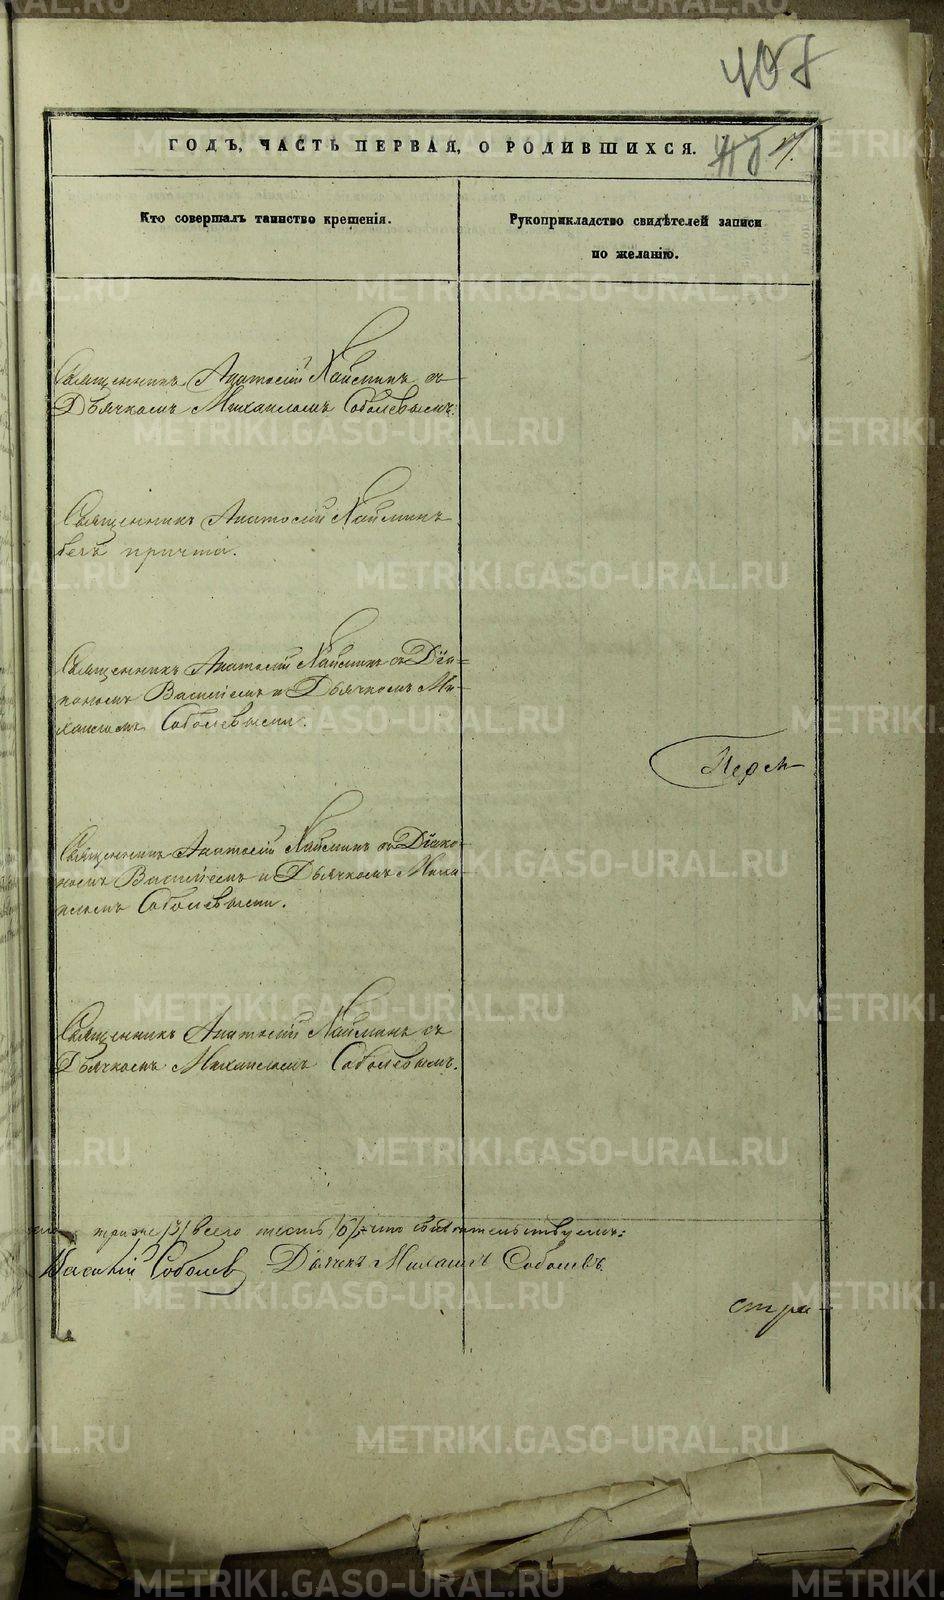 407
ГОДЪ, ЧАСТЬ ПЕРВАЯ, О РОДИВШИХСЯ.
Кто совершалъ таинство крещенія.
Рукоприкладство свидѣтелей записи
по желанію.
Священникъ Анатолій Наймикъ съ
Дьячкомъ Михаиломъ Соболевымъ.
Священникъ Анатолій
безъ причта.
Священникъ Анатолій съ Діа-
кономъ Василіемъ и Дьячкомъ Ми-
хаиломъ Соболевыми.
Перм
Священникъ Анатолій съ Діако-
номъ Василіемъ и Дьячкомъ Миха-
иломъ Соболевыми.
Священникъ Анатолій съ
Дьячкомъ Михаиломъ Соболевымъ.
/3/ всего шесть /6/ что свидѣтельствуемъ:
Василій Соболевъ Дьячекъ Михаилъ Соболевъ.
стра
METRIKI.GASO-URAL.RU